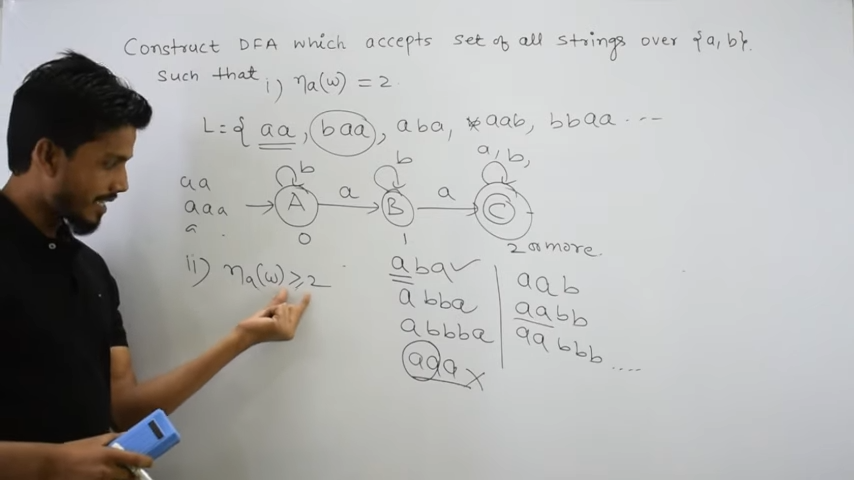 Construct DFA which accepts set of all strings over {a,b}.
such that i) ηa(ω) = 2
L = { aa, baa, aba, aab, bbaa ....
a, b,
b
b
aa
aaa
a
A
a
B
a
C
0
1
2 or more.
ii) ηa(ω) ≥ 2
aba ✓
abba
abbba
aaa X
aab
aabb
aabbb ....